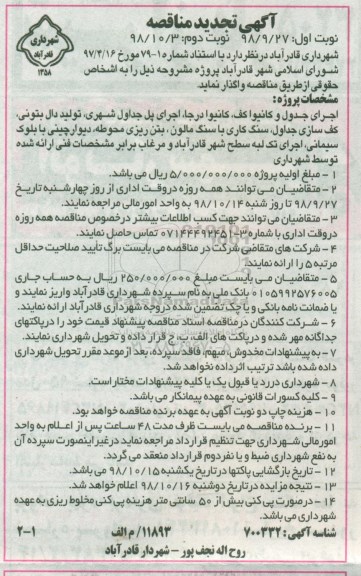 آگهی تجدید مناقصه
نوبت اول: ۹۸/۹/۲۷ نوبت دوم: ۹۸/۱۰/۳
شهرداری
قادرآباد
۱۳۵۸
شهرداری قادرآباد در نظر دارد با استناد شماره ۱۵-۷۹ مورخ ۹۷/۴/۱۶
شورای اسلامی شهر قادرآباد پروژه مشروحه ذیل را به اشخاص
حقوقی از طریق مناقصه واگذار نماید.
مشخصات پروژه:
اجرای جدول و کانیوا کف، کانیوا درجا، اجرای پل جداول شهری، تولید دال بتونی،
کف سازی جداول، سنگ کاری با سنگ مالون، بتن ریزی محوطه، دیوارچینی با بلوک
سیمانی، اجرای تک لبه سطح شهر قادرآباد و مرغاب برابر مشخصات فنی ارائه شده
توسط شهرداری
۱- مبلغ اولیه پروژه ۵/۰۰۰/۰۰۰/۰۰۰ ریال می باشد.
۲- متقاضیان می توانند همه روزه در وقت اداری از روز چهارشنبه تاریخ
۹۸/۹/۲۷ تا روز شنبه ۹۸/۱۰/۱۴ به واحد امور مالی مراجعه نمایند.
۳- متقاضیان می توانند جهت کسب اطلاعات بیشتر در خصوص مناقصه همه روزه
در وقت اداری با شماره ۳-۰۷۱۴۴۴۹۲۴۵۱ تماس حاصل نمایند.
۴- شرکت های متقاضی شرکت در مناقصه می بایست برگ تأیید صلاحیت حداقل
مرتبه ۵ را ارائه نمایند.
۵- متقاضیان می بایست مبلغ ۲۵۰/۰۰۰/۰۰۰ ریال به حساب جاری
۰۱۰۵۹۹۲۵۷۶۰۰۵ بانک ملی به نام سپرده شهرداری قادرآباد واریز نمایند و
یا ضمانت نامه بانکی و یا چک تضمین شده در وجه شهرداری قادرآباد ارائه نمایند.
۶- شرکت کنندگان در مناقصه اسناد مناقصه پیشنهاد قیمت خود را در پاکتهای
جداگانه مهر شده و در پاکت های الف، ب، ج قرار داده و تحویل شهرداری نمایند.
۷- به پیشنهادات مخدوش، مبهم، فاقد سپرده، بعد از موعد مقرر تحویل شهرداری
داده شده باشد ترتیب اثر داده نخواهد شد.
۸- شهرداری در رد یا قبول یک یا کلیه پیشنهادات مختار است.
۹- کلیه کسورات قانونی به عهده پیمانکار می باشد.
۱۰- هزینه چاپ دو نوبت آگهی به عهده برنده مناقصه خواهد بود.
۱۱- برنده مناقصه می بایست ظرف مدت ۴۸ ساعت پس از اعلام به واحد
امور مالی شهرداری جهت تنظیم قرارداد مراجعه نماید در غیر اینصورت سپرده آن
به نفع شهرداری ضبط و با نفر دوم قرارداد منعقد می گردد.
۱۲- تاریخ بازگشایی پاکتها در تاریخ یکشنبه ۹۸/۱۰/۱۵ می باشد.
۱۳- نتیجه مزایده در تاریخ دوشنبه ۹۸/۱۰/۱۶ اعلام خواهد شد.
۱۴- در صورت پی کنی بیش از ۵۰ سانتی متر هزینه پی کنی مخلوط ریزی به عهده
شهرداری می باشد.
شناسه آگهی: ۷۰۰۳۳۲ ۱۱۸۹۳/م الف ۲-۱
روح اله نجف پور - شهردار قادرآباد